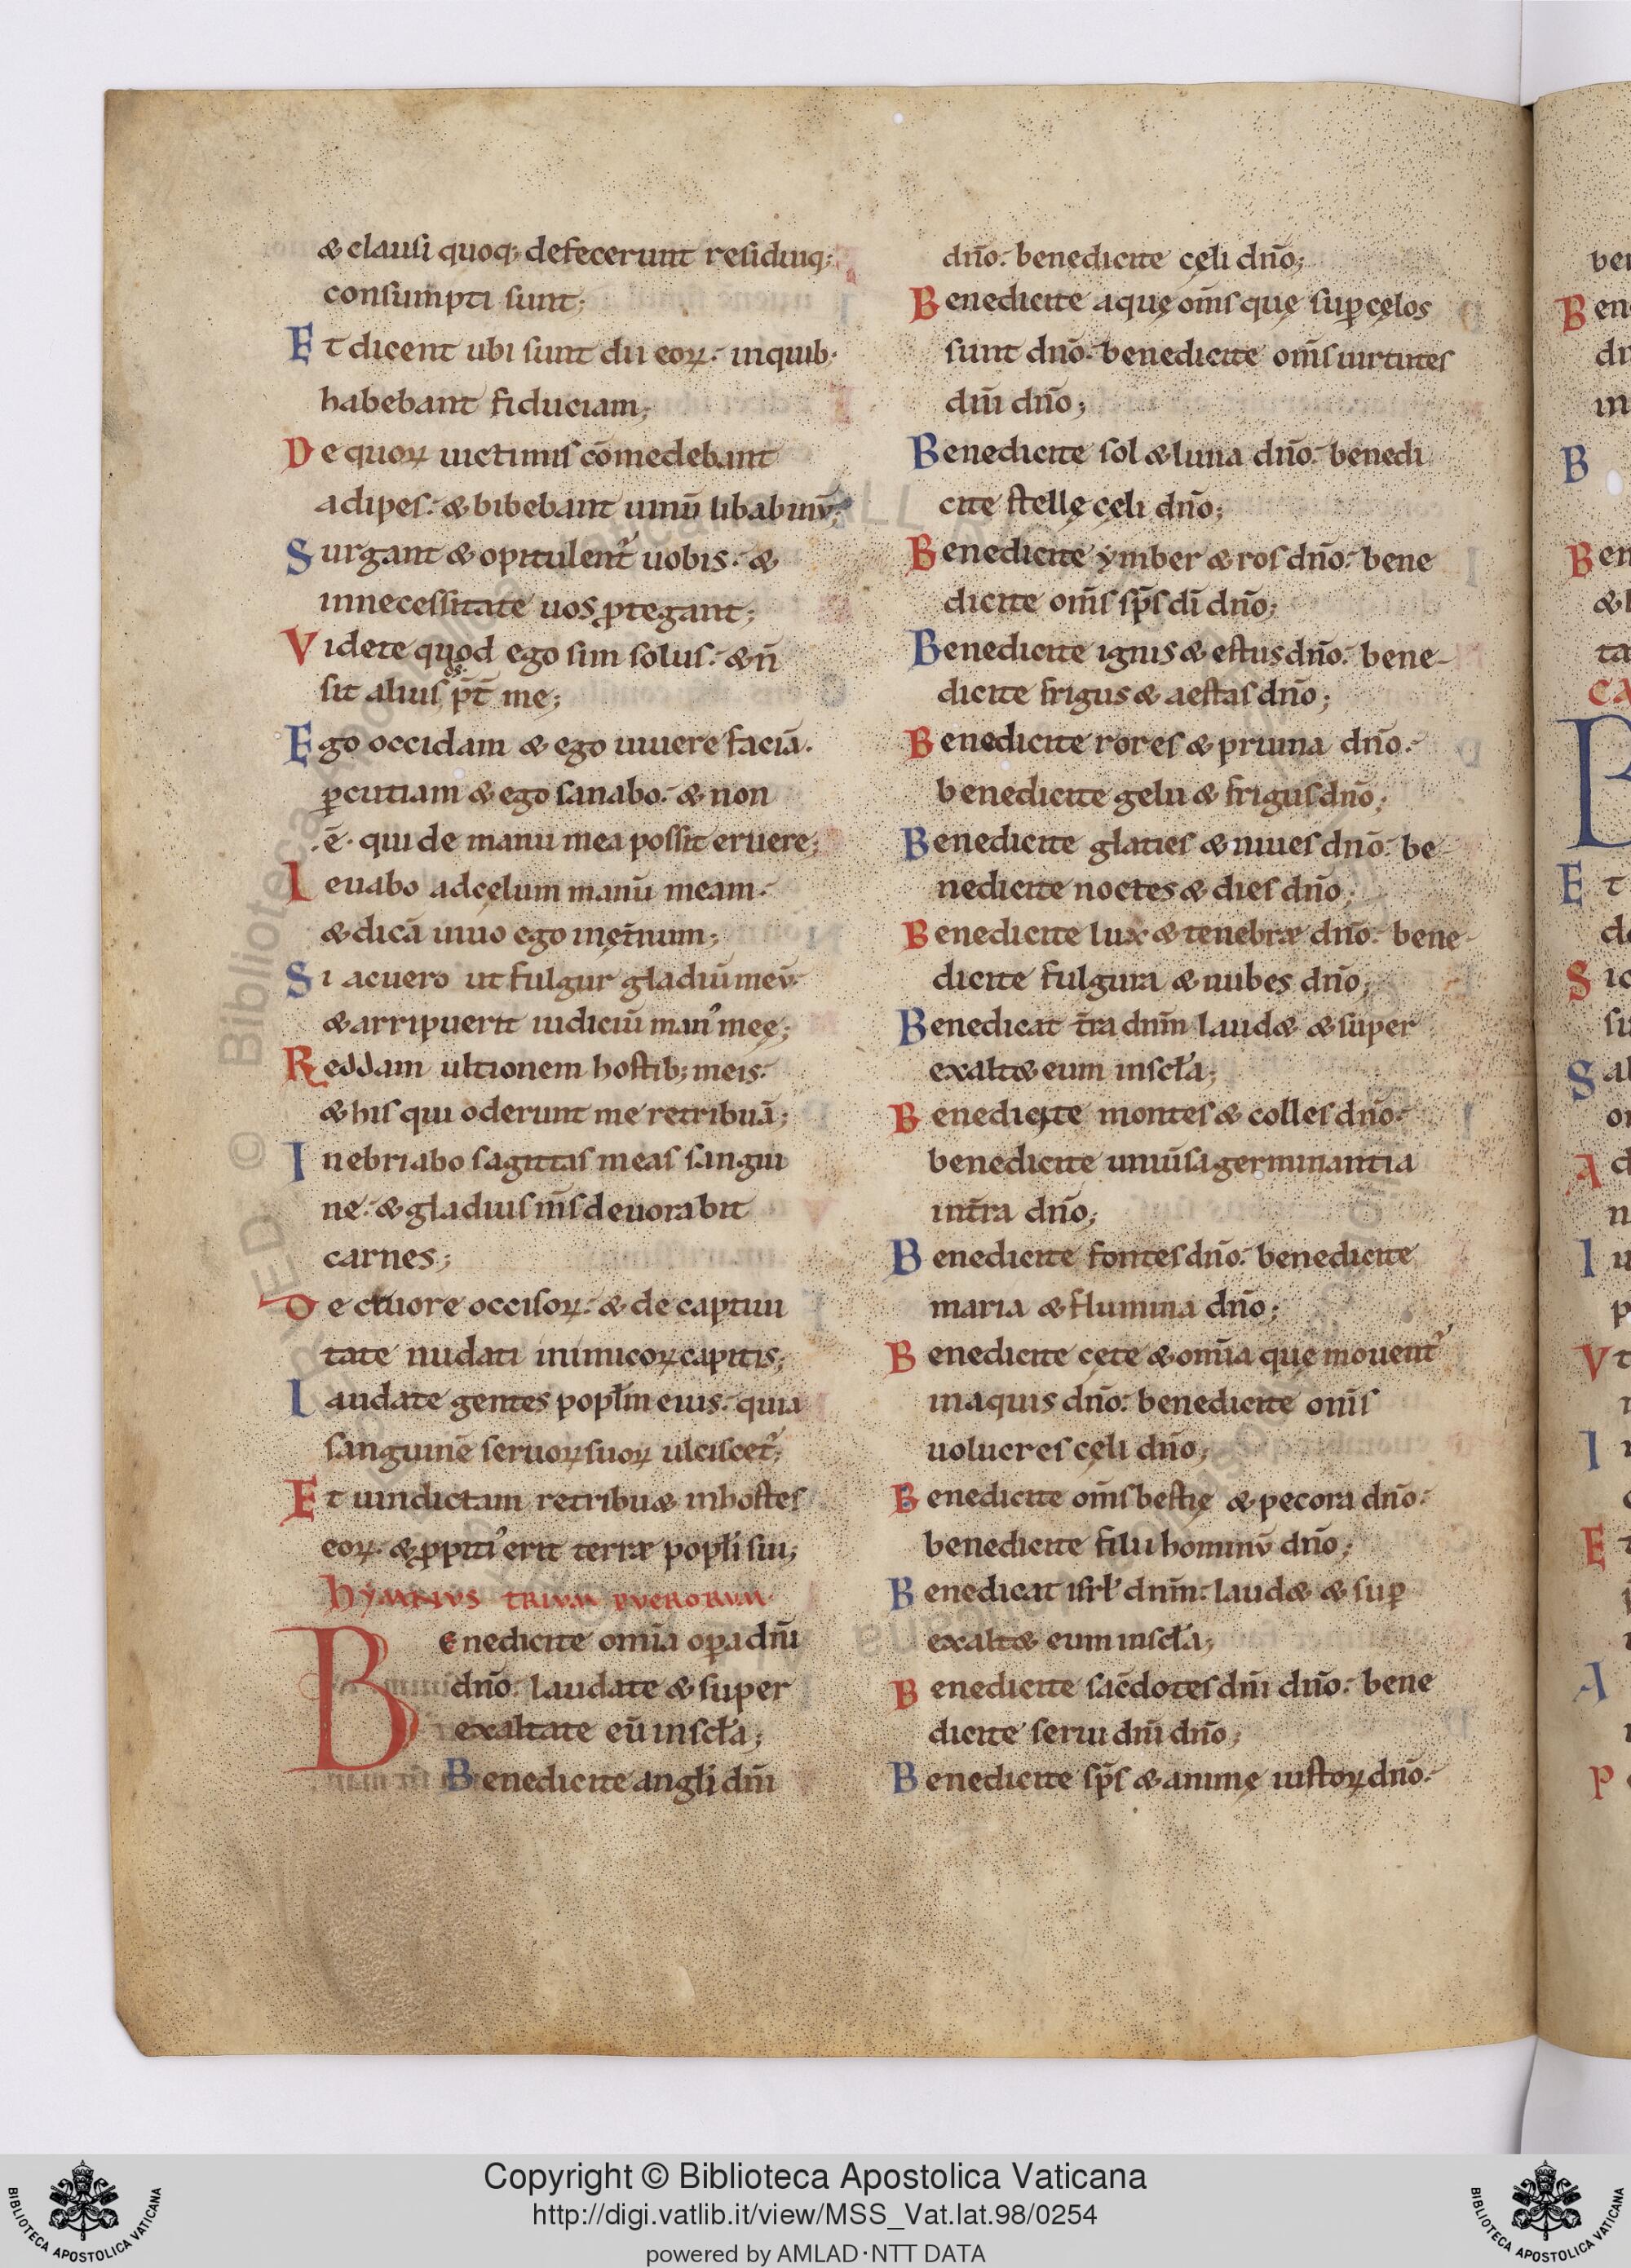 & clausi quoq; defecerunt residuiq;
consumpti sunt;
Et dicent ubi sunt dii eoꝝ. inquib;
habebant fiduciam;
De quoꝝ uictimis cōmedebant
adipes. & bibebant uinū libabinv̄;
Surgant & opitulent᷒ uobis. &
innecessitate uos ꝓtegant;
Videte quod ego sim solus. & n̄
sit alius p̄t̄ me;
Ego occidam & ego uiuere faciā.
ꝑcutiam & ego sanabo. & non
.ē. qui de manu mea possit eruere;
Leuabo adcęlum manū meam.
& dicā uiuo ego inęt̄num;
Si acuero ut fulgur gladiū mev̄
& arripuerit iudiciū man᷒ meę;
Reddam ultionem hostib; meis.
& his qui oderunt me retribuā;
Inebriabo sagittas meas sangui
ne. & gladius m̄s deuorabit
carnes;
De cruore occisoꝝ. & de captiui
tate nudati inimicoꝝ capitis;
Laudate gentes popłm eius. quia
sanguinē seruoꝝ suoꝝ ulciscet᷒;
Et uindictam retribu& inhostes
eoꝝ. & ꝓpiti᷒ erit terræ popłi sui;
Hymnvs trivm pverorvm
Benedicite om̄ia oꝑa dn̄i
dn̄o. laudate & super
exaltate eū insct̄a;
Benedicite angłi dn̄i
dn̄o. benedicite cęli dn̄o;
Benedicite aquę om̄s quę suꝑ cęlos
sunt dn̄o. benedicite om̄s uirtutes
dn̄i dn̄o;
Benedicite sol & luna dn̄o. benedi
cite stellę cęli dn̄o;
Benedicite ymber & ros dn̄o. bene
dicite om̄s sp̄s dī dn̄o;
Benedicite ignis & estus dn̄o. bene-
dicite frigus & aestas dn̄o;
Benedicite rores & pruina dn̄o.
benedicite gelu & frigus dn̄o;
Benedicite glacies & niues dn̄o. be-
nedicite noctes & dies dn̄o;
Benedicite lux & tenebræ dn̄o. bene-
dicite fulgura & nubes dn̄o;
Benedicat t̄ra dnm̄ laud& & super
exalt& eum inscła;
Benedicite montes & colles dn̄o.
benedicite uniūsa germinantia
int̄ra dn̄o;
Benedicite fontes dn̄o. benedicite
maria & flumina dn̄o;
Benedicite cęte & om̄ia quę mouent᷒
inaquis dn̄o. benedicite om̄s
uolucres cęli dn̄o;
Benedicite om̄s bestię & pecora dn̄o.
benedicite filii hominv̄ dn̄o;
Benedicat isrł dnm̄. laud& & suꝑ
exalt& eum inscła;
Benedicite sac̄dotes dn̄i dn̄o. bene
dicite serui dn̄i dn̄o;
Benedicite sp̄s & animę iustoꝝ dn̄o.
Copyright © Biblioteca Apostolica Vaticana
http://digi.vatlib.it/view/MSS_Vat.lat.98/0254
powered by AMLAD·NTT DATA
BIBLIOTECA APOSTOLICA VATICANA
BIBLIOTECA APOSTOLICA VATICANA